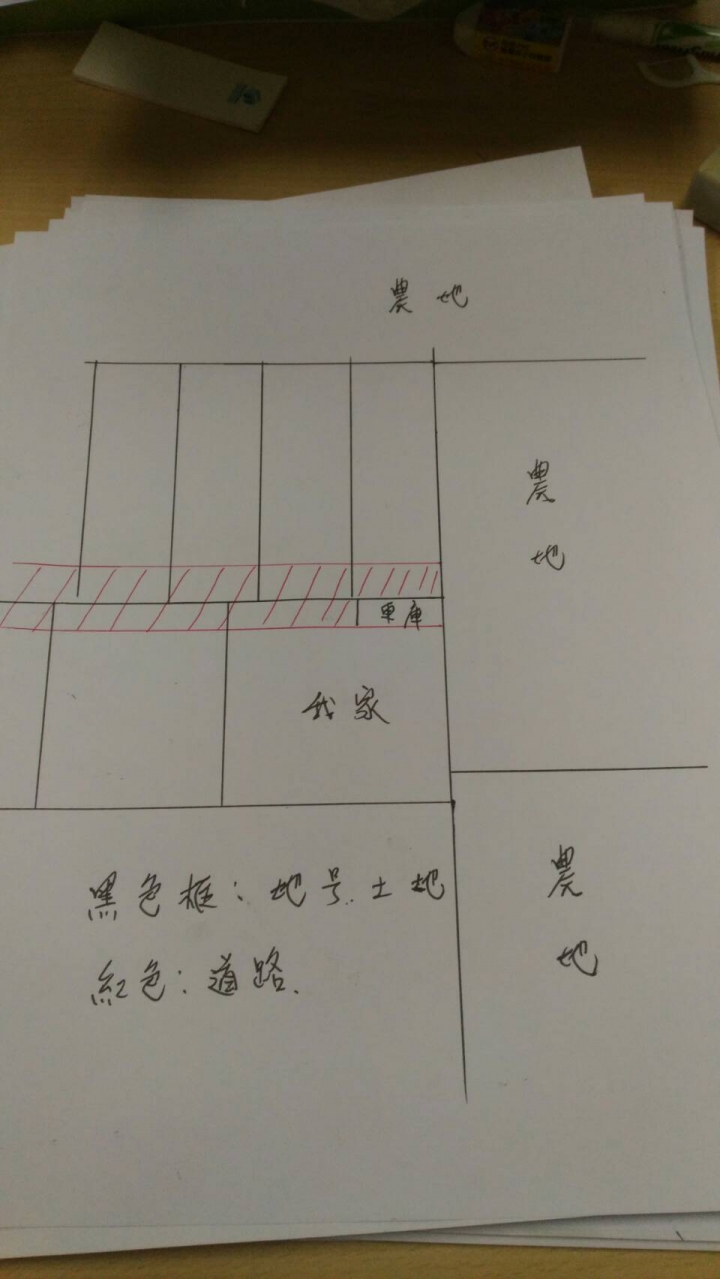 農地
農
地
車庫
我家
農
地
黑色框：地号土地
紅色：道路.